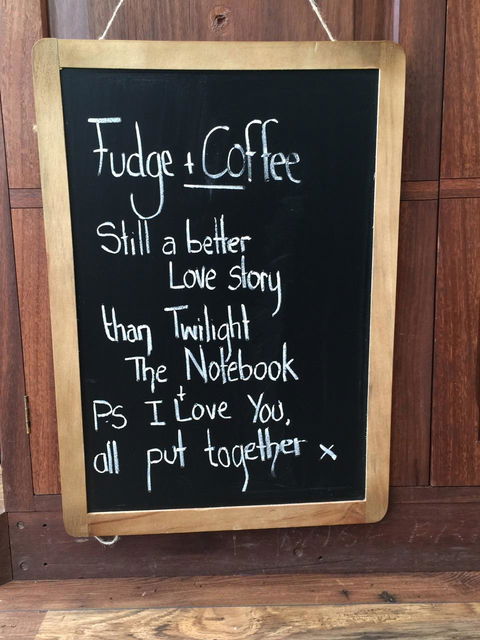 Fudge + Coffee
Still a better
Love story
than Twilight
The Notebook
+
P.S I Love You,
all put together x